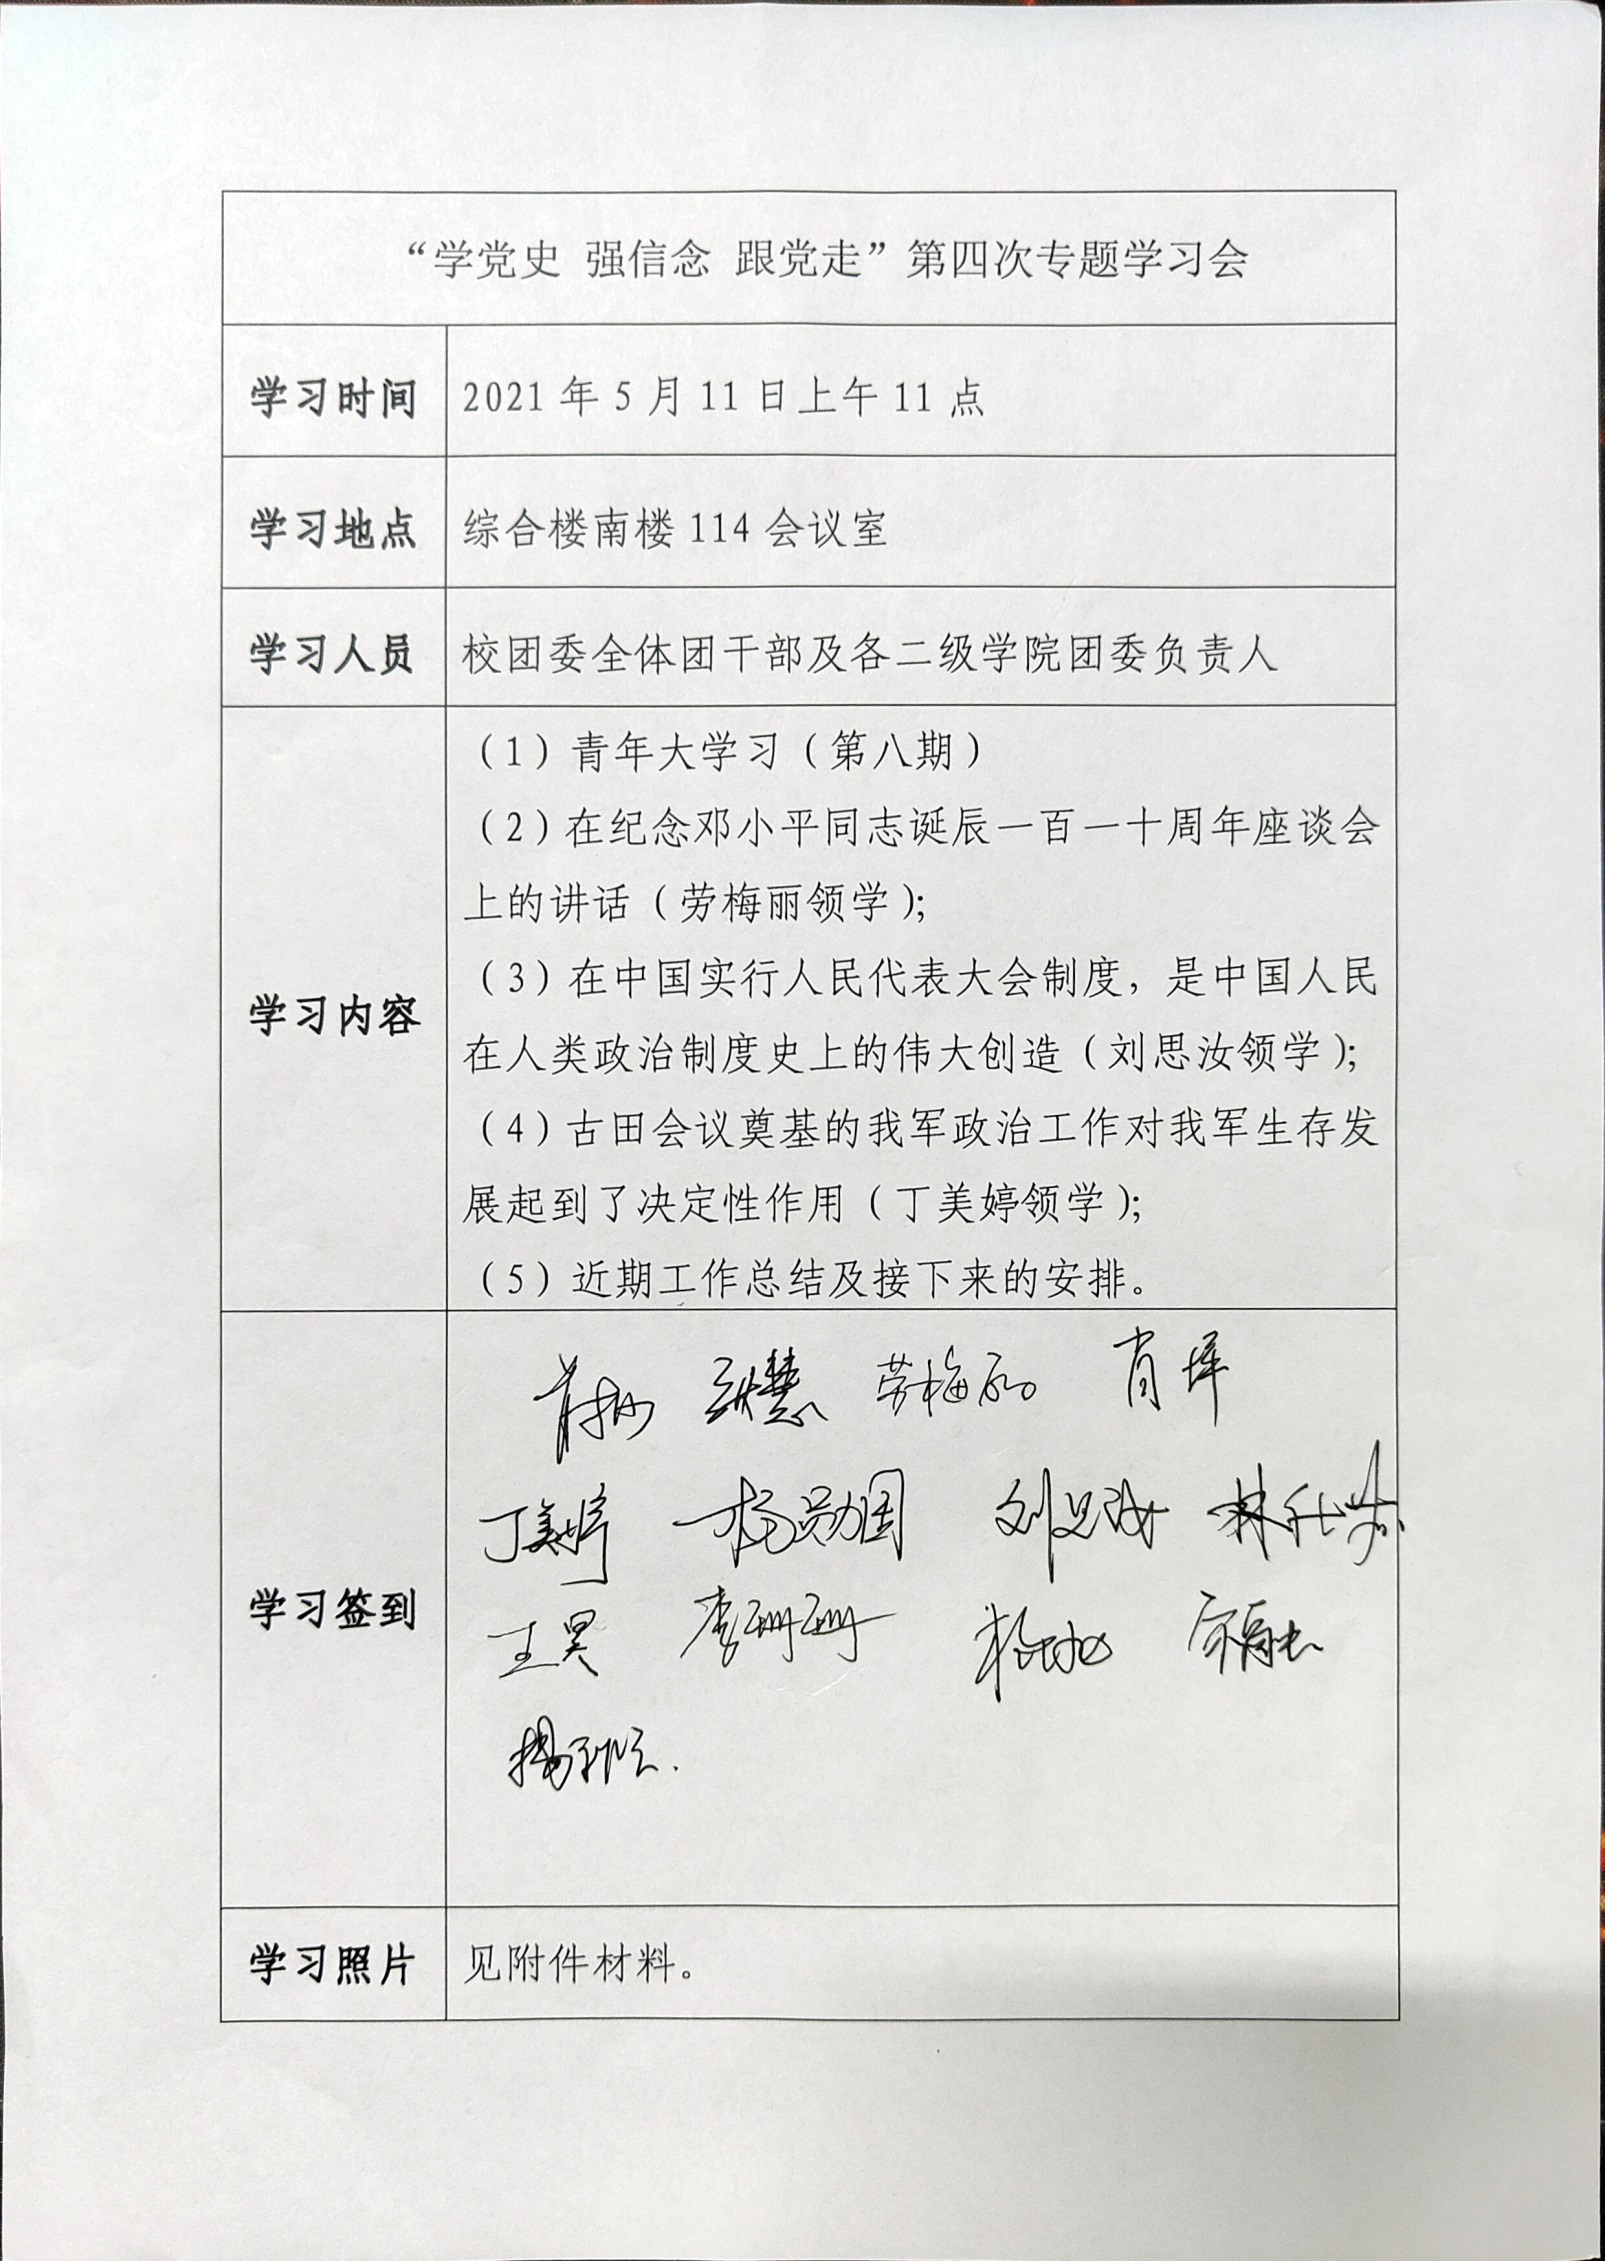 “学党史 强信念 跟党走”第四次专题学习会
学习时间
2021年5月11日上午11点
学习地点
综合楼南楼114会议室
学习人员
校团委全体团干部及各二级学院团委负责人
学习内容
（1）青年大学习（第八期）
（2）在纪念邓小平同志诞辰一百一十周年座谈会
上的讲话（劳梅丽领学）；
（3）在中国实行人民代表大会制度，是中国人民
在人类政治制度史上的伟大创造（刘思汝领学）；
（4）古田会议奠基的我军政治工作对我军生存发
展起到了决定性作用（丁美婷领学）；
（5）近期工作总结及接下来的安排。
学习签到
劳梅丽 肖坪
丁美婷 杨勋国 刘思汝
王昊 李珊珊
学习照片
见附件材料。